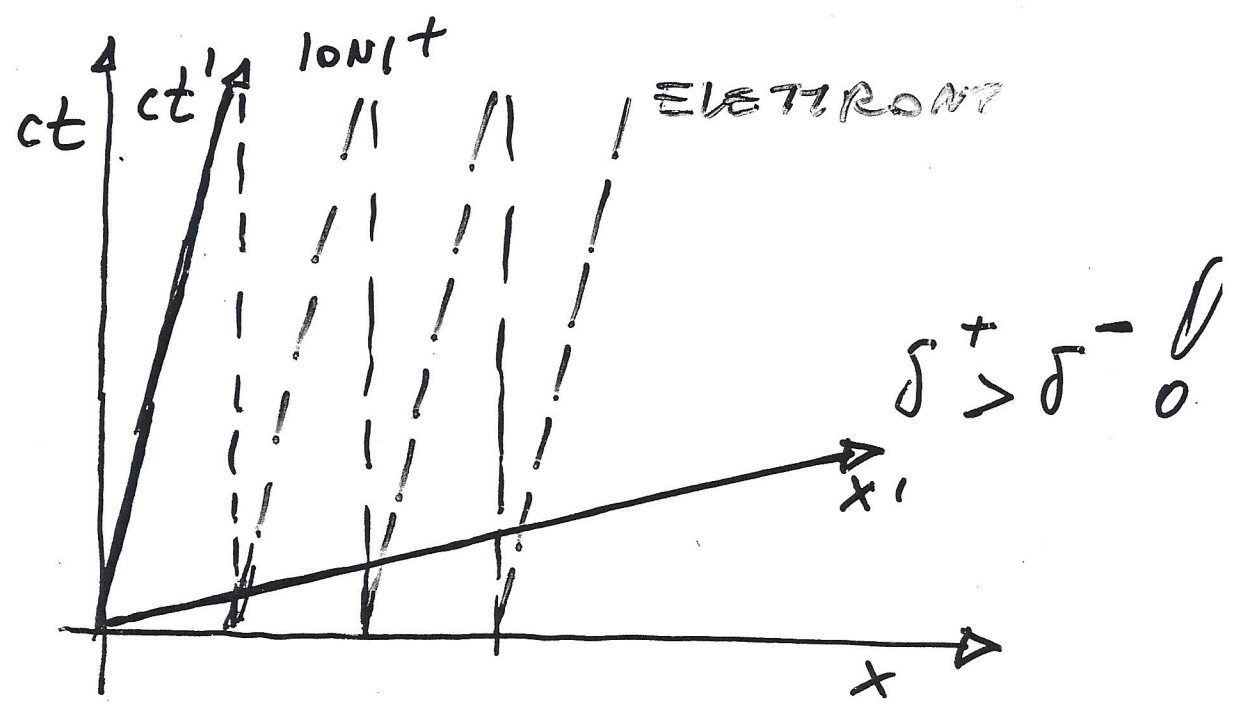 ct
ct'
IONI +
ELETTRONI
δ⁺ > δ⁻ !
x'
x